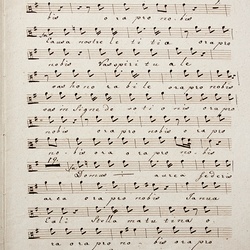 bis ora pro no bis
Causa nostre le ti tia ora pro
nobis Vas spiri tu a le
vas hono ra bi le ora pro nobis
vas in signe de voti o nis ora pro
nobis ora pro nobis ora pro
no bis ora pro no bis
19. Domus aurea federis
arca ora pro nobis Janua
Celi Stella matu tina o
ra ora pro no bis ora pro